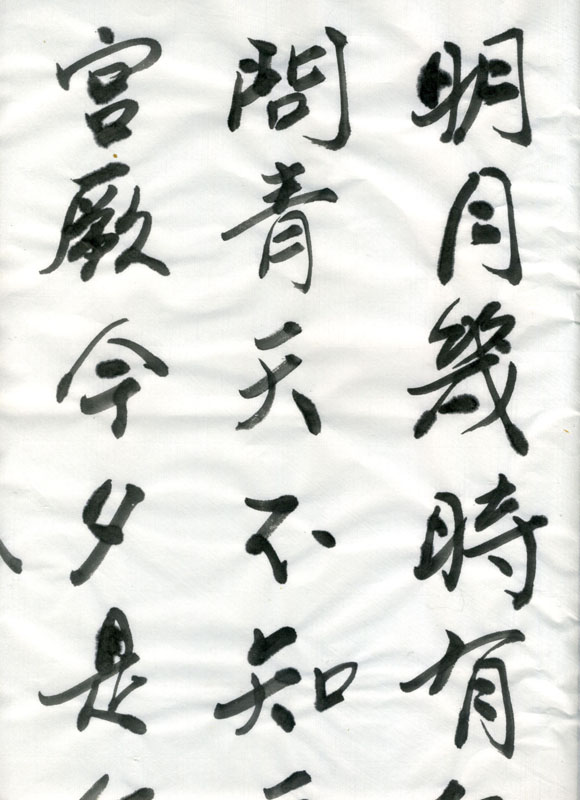 明月幾時有
問青天不知
宮厥今夕是